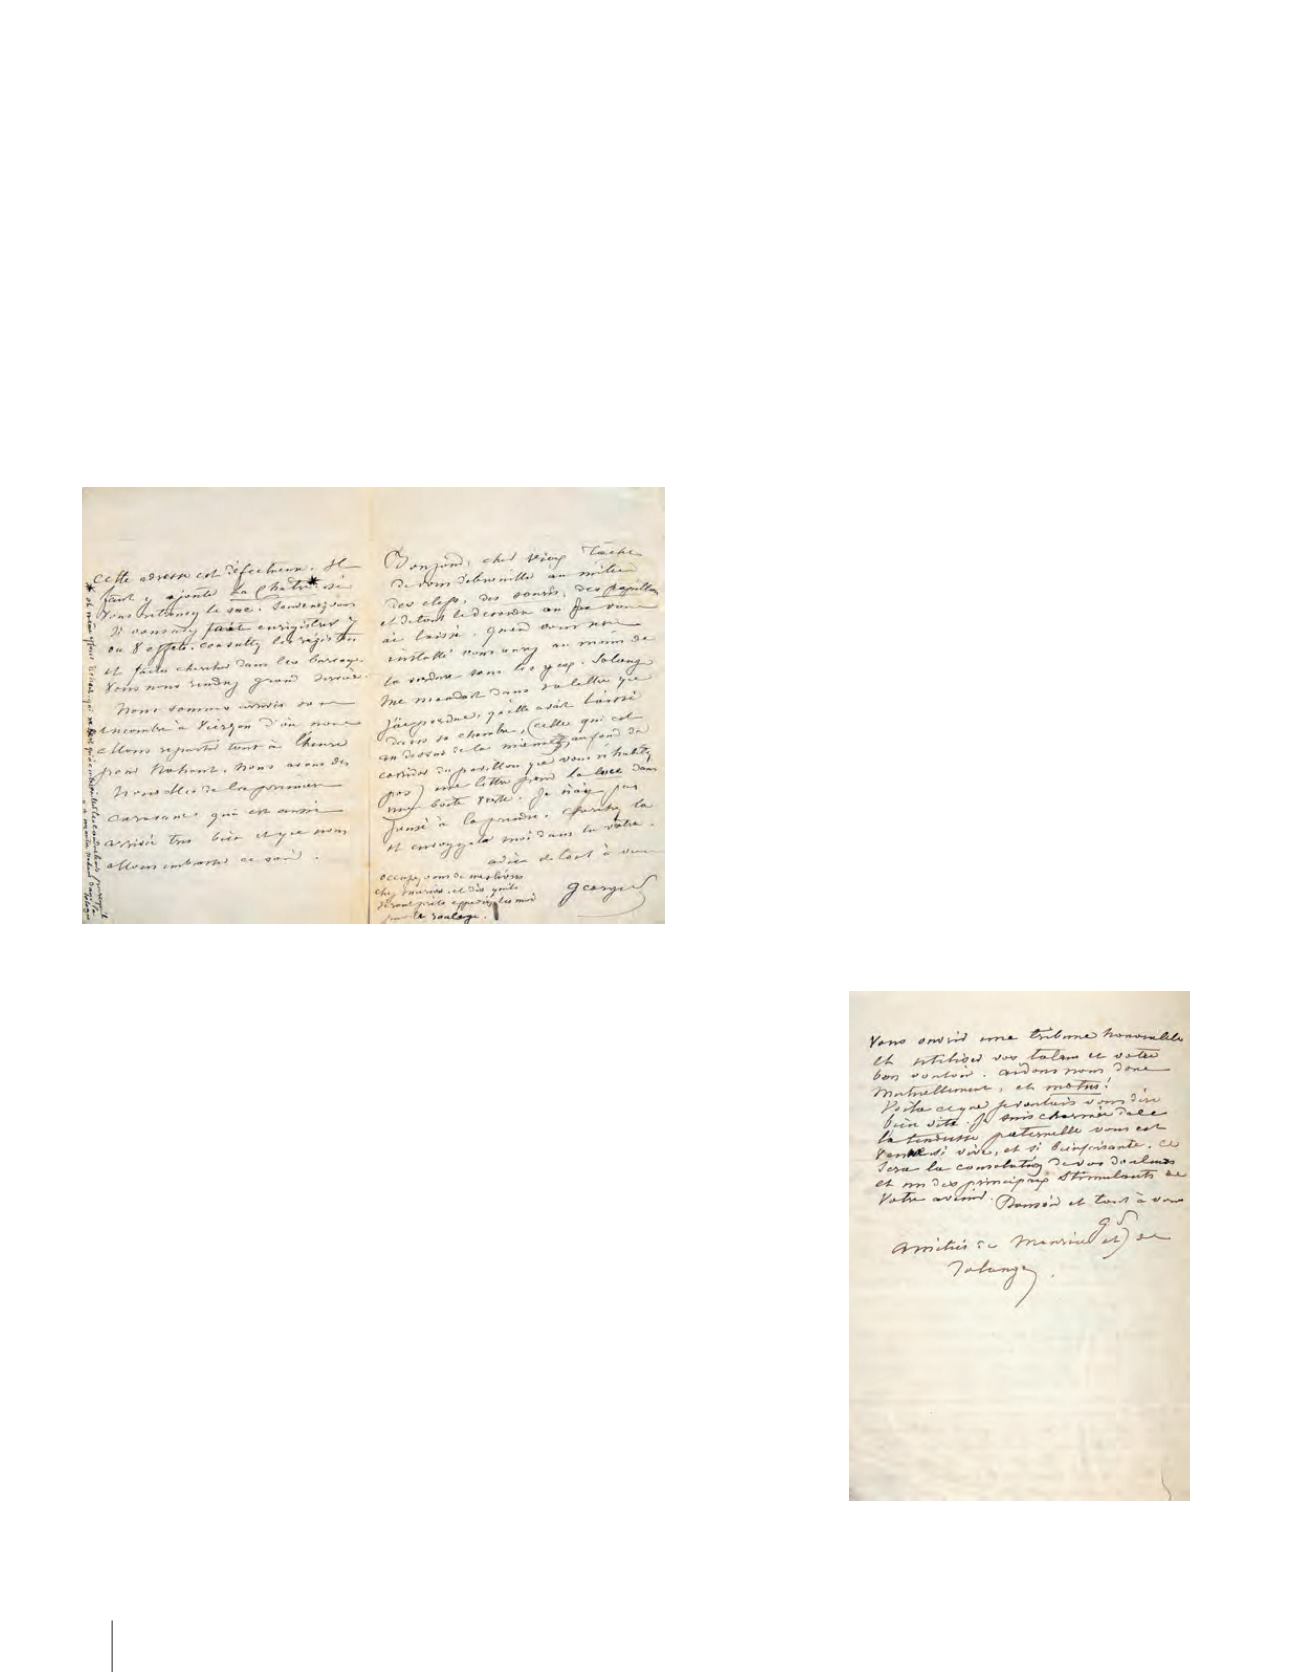 Cette adresse est défectueuse. Il
faut y ajouter La Châtre* si
vous retrouvez le sac. Souvenez vous
si vous avez fait enregistrer 7
ou 8 effets. consultez les registres
et faites chercher dans les bureaux.
Vous nous rendrez grand service.
Nous sommes arrivés sans
encombre à Vierzon d'où nous
allons repartir tout à l'heure
pour Nohant. Nous avons des
nouvelles de la première
caravane qui est aussi
arrivée très bien et que nous
allons embrasser ce soir.
Bonjour, cher vieux Tâchez
de vous débrouiller au milieu
des clefs, des souris, des papillons
et de tout le désordre où je vous
ai laissé. Quand vous serez
installé vous aurez au moins de
la verdure sous les yeux. Solange
me mandait dans sa lettre que
j'ai perdue, qu'elle avait laissé
dans sa chambre, (celle qui est
au dessus de la mienne, au fond du
corridor du pavillon que vous n'habitez
pas) une lettre pour la dans
une boîte verte. Je n'ai pas
pensé à la prendre. cherchez la
et envoyez la moi dans la vôtre.
adieu de tout à vous
George S
occupez vous de
chez Maurice, et dès qu'ils
seront prêts expédiez les moi
par le roulage.
vous ouvrir une tribune honorable
et utiliser vos talens et votre
bon vouloir. aidons nous donc
mutuellement, et motus!
Voilà ce que je voulais vous dire
bien vite. Je suis charmée que
la tendresse paternelle vous est
si vive, et si bienfaisante. ce
sera la consolation de vos douleurs
et un des principaux stimulants de
votre avenir. Bonsoir et tout à vous
G S
Amitiés de Maurice et de
Solange.